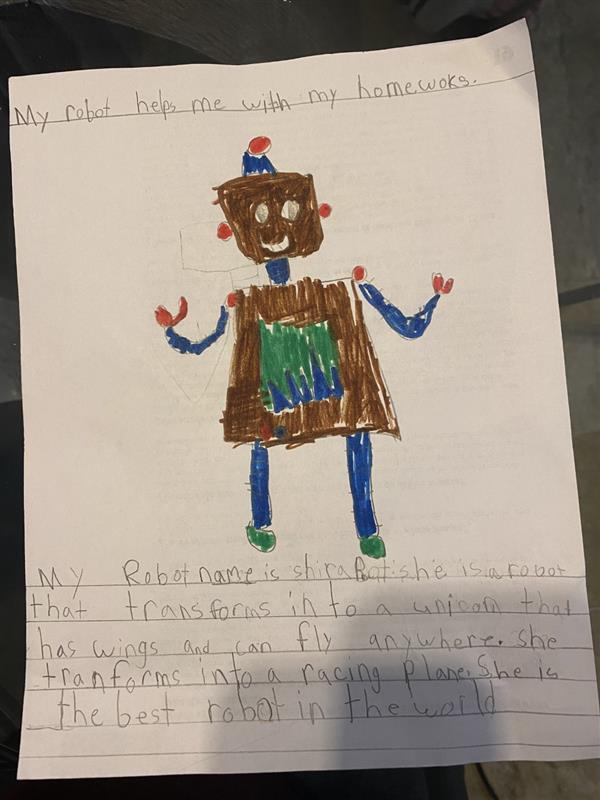 My robot helps me with my homewoks.
My Robot name is shiraBot. she is a robot
that transforms in to a unicon that
has wings and can fly anywhere. she
tranforms into a racing plane. She is
the best robot in the world